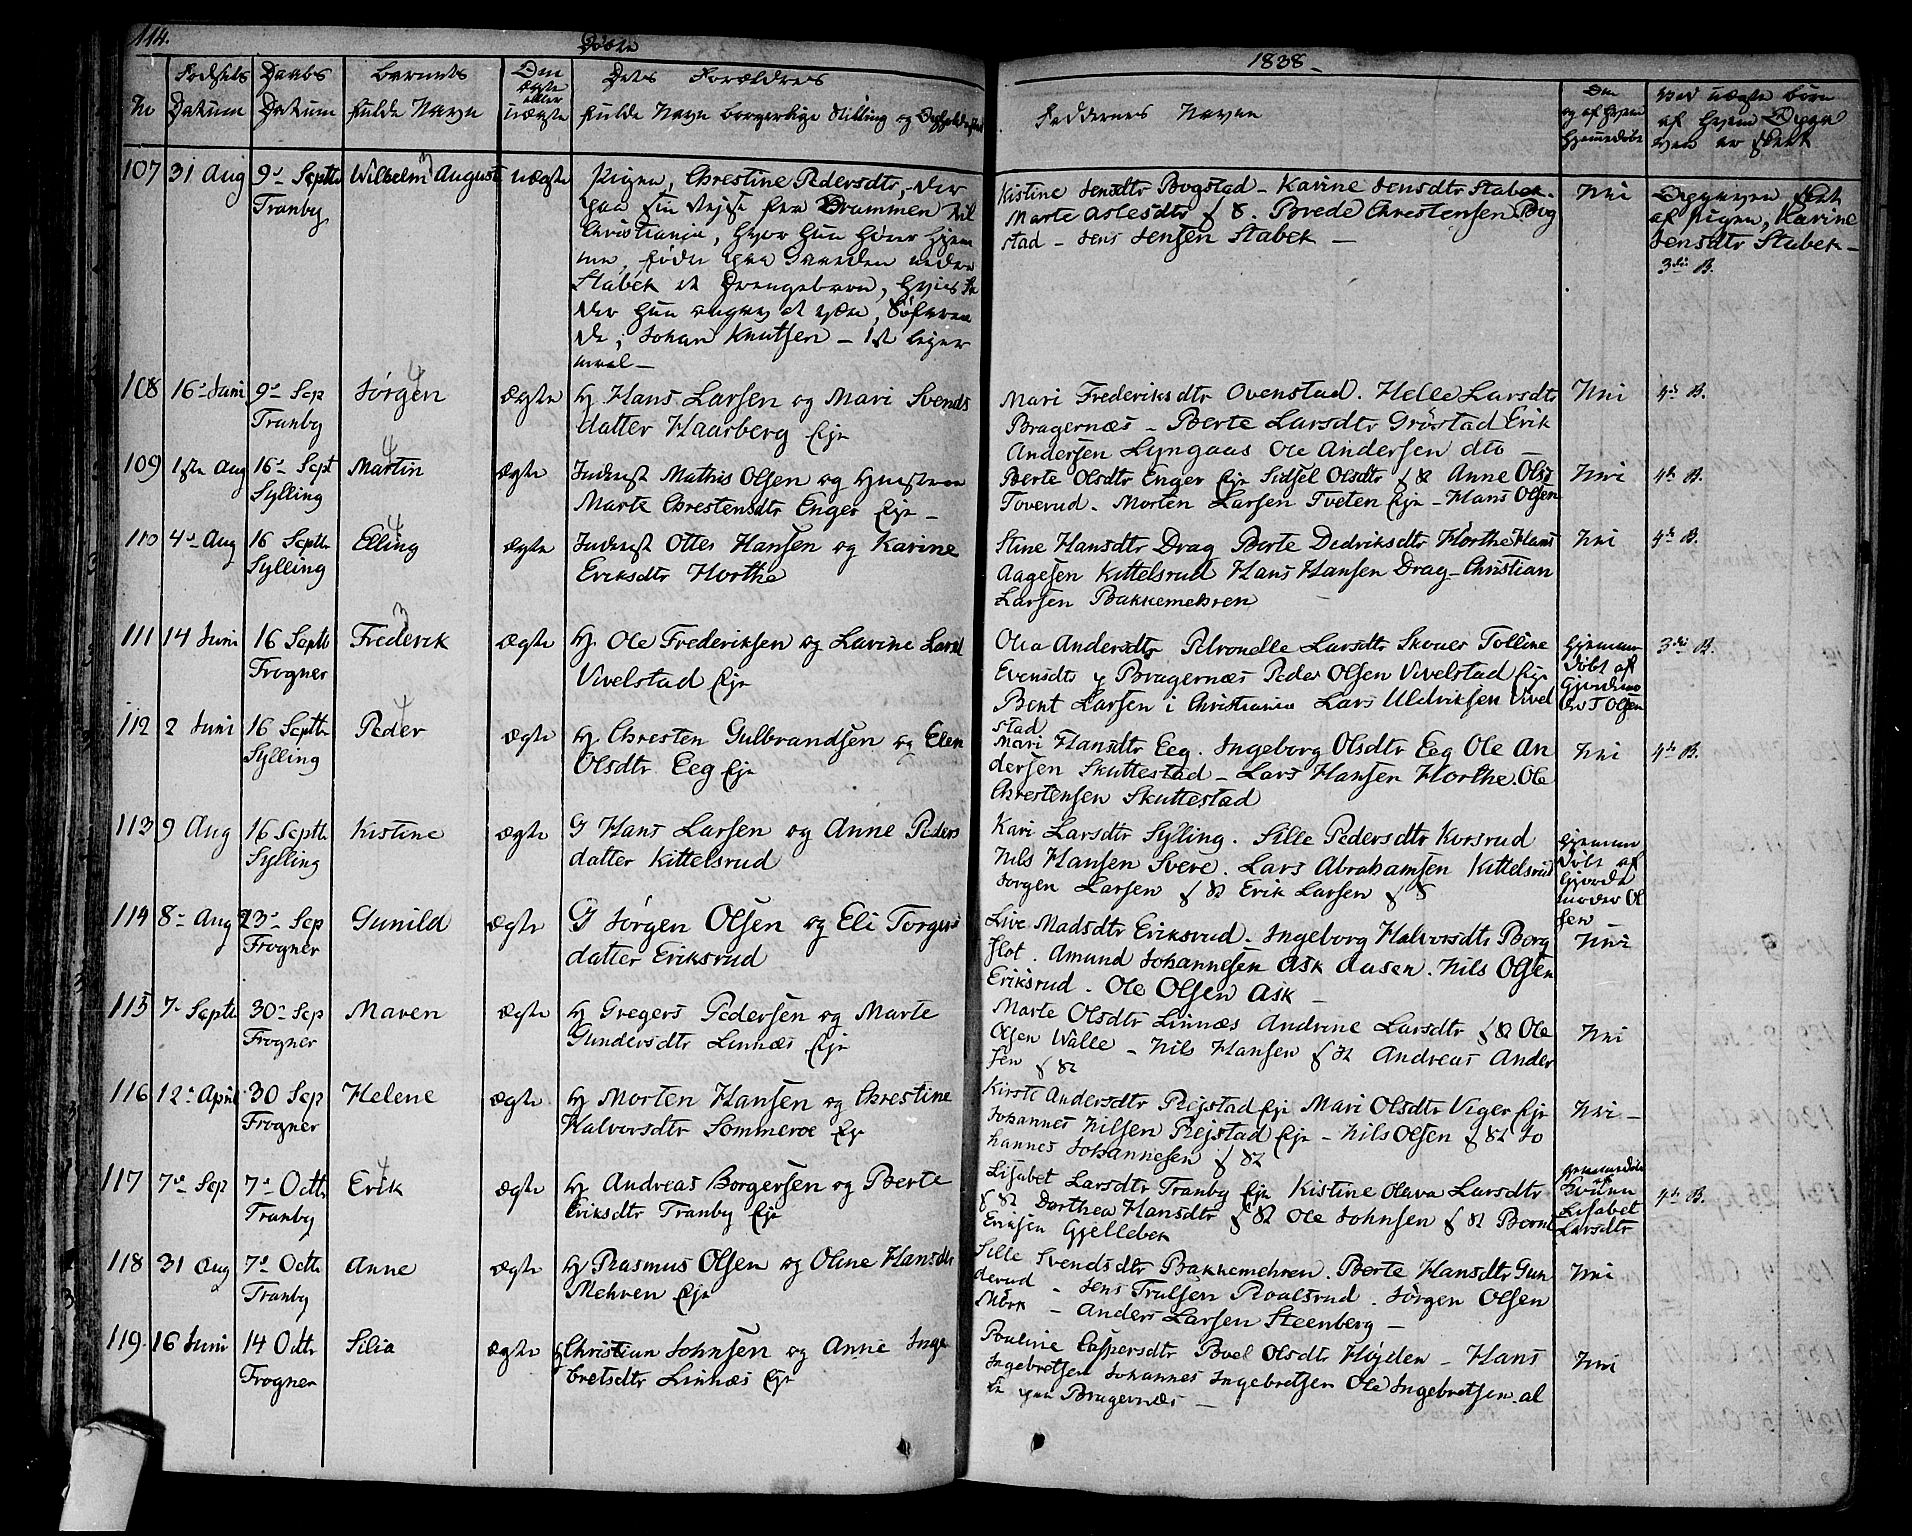 114.
Døbte
1838 –
No
Fødsels Datum
Daabs Datum
Barnets fulde Navn
Om ægte eller uægte
Dets Forældres
fulde Navn borgerlige Stilling og
Faddernes Navne
Om
Hjemmedøbt
Ved uægte Børn
107 31 Aug 9de Septbr Wilhelm August uægte Pigen, Chrestine Pedersdtr, der
Tranby
paa sin Rejse fra Drammen til
Christiania, hvor hun hører hjem
me, fødte paa Gaarden nedre
Stabek et Drengebarn, hvis Fa
der hun angav at være, Søfaren
de, Johan Knutsen – 1st lejer
maal –
Kistine Jensdtr Bogstad – Karine Jensdtr Stabek.
Marte Aslesdtr f S. Brede Chrestensen Bog
stad – Jens Jensen Stabek –
Nei
Opgiven
af Pigen, Karine
Jensdtr Stabek –
3die B.
108 16de Juni 9de Sep Jørgen ægte Hans Larsen og Mari Svends
Tranby
datter Haarberg Eje
Mari Frederiksdtr Ovenstad. Helle Larsdtr
Bragernæs – Berte Larsdtr Grøstad Erik
Andersen Lyngaas Ole Andersen dto –
Nei 4de B.
109 1ste Aug 16de Sept Martin ægte Inderst Mathis Olsen og Hustrue
Sylling
Marte Chrestensdtr Enger Eje –
Berte Olsdtr Enger Eje Sidsel Olsdtr f S Anne Olsd
Toverud. Morten Larsen Tveten Eje – Hans Olsen
Nei 4de B.
110 4de Aug 16 Septbr Elling ægte Inderst Otter Hansen og Karine
Sylling
Eriksdtr Horthe
Stine Hansdtr Drag Berte Dedriksdtr Horthe Hans
Aagesen Kittelsrud Hans Hansen Drag – Christian
Larsen Bakkemehren
Nei 4de B.
111 14 Juni 16 Septb Frederik ægte Ole Frederiksen og Lavine Larsd
Frogner
Vivelstad Eje
Olea Andersdtr Petronelle Larsdtr Skoues Tolline
Evensdtr Bragernæs Peder Olsen Vivelstad Eje
Bent Larsen i Christiania Lars Uldriksen Vivel
stad
Hjemme
døbt af
Gjordemo
der T Olsen
3die B.
112 2 Juni 16 Septbr Peder ægte Chresten Gulbrandsen og Elen
Sylling
Olsdtr Eeg Eje
Mari Hansdtr Eeg. Ingeborg Olsdtr Eeg Ole An
dersen Skuttestad – Lars Hansen Horthe. Ole
Chrestensen Skuttestad
Nei 4de B.
113 9 Aug 16 Septbr Kistine ægte G Hans Larsen og Anne Peders
Sylling
datter Kittelsrud
Kari Larsdtr Sylling. Sille Pedersdtr Korsrud
Nils Hansen Svere. Lars Abrahamsen Kittelsrud
Jørgen Larsen f S Erik Larsen f S
Hjemme
døbt af
Gjorde
moder Ol
sen
114 8de Aug 23de Sep Gunild ægte G Jørgen Olsen og Eli Torgers
Frogner
datter Eriksrud
Live Madsdtr Eriksrud. Ingeborg Halvorsdtr Borg
flot. Amund Johannesen Ask aasen. Nils Olsen
Eriksrud. Ole Olsen Ask –
Nei
115 7de Septb 30de Sep Maren ægte Gregers Pedersen og Marte
Frogner
Gundersdtr Linnæs Eje
Marte Olsdtr Linnæs Andrine Larsdtr f S Ole
Olsen Walle – Nils Hansen f S Andreas Ander
sen f S
Nei
116 12te April 30 Sep Helene ægte Morten Hansen og Chrestine
Frogner
Halvorsdtr Sommeroe Eje
Kirste Andersdtr Rejstad Eje Mari Olsdtr Viger Eje
Johannes Nilsen Rejstad Eje – Nils Olsen f S Jo
hannes Johannesen f S
Nei –
117 7de Sep 7de Octb Erik ægte Andreas Borgersen og Berte
Tranby
Eriksdtr Tranby Eje
Lisabet Larsdtr Tranby Eje Kistine Olava Larsdtr
f S Dorthea Hansdtr f S Ole Johnsen f S Bernt
Eriksen Gjellebek
Hjemmedøbt
af
Lisabet
Larsdtr
4de B.
118 31 Aug 7de Octbr Anne ægte Rasmus Olsen og Oline Hansdtr
Tranby
Mehren Eje
Sille Svendsdtr Bakkemehren. Berte Hansdtr Gun
derud – Jens Trulsen Roalsrud. Jørgen Olsen
Mörk – Anders Larsen Steenberg –
Nei
119. 16 Juni 14 Octbr Silia ægte Christian Johnsen og Anne Inge
Frogner
bretsdtr Linnæs Eje
Pauline Caspersdtr Boel Olsdtr Høyden – Hans
Ingebretsen Johannes Ingebretsen Ole Ingebretsen al
le paa Bragernæs –
Nei